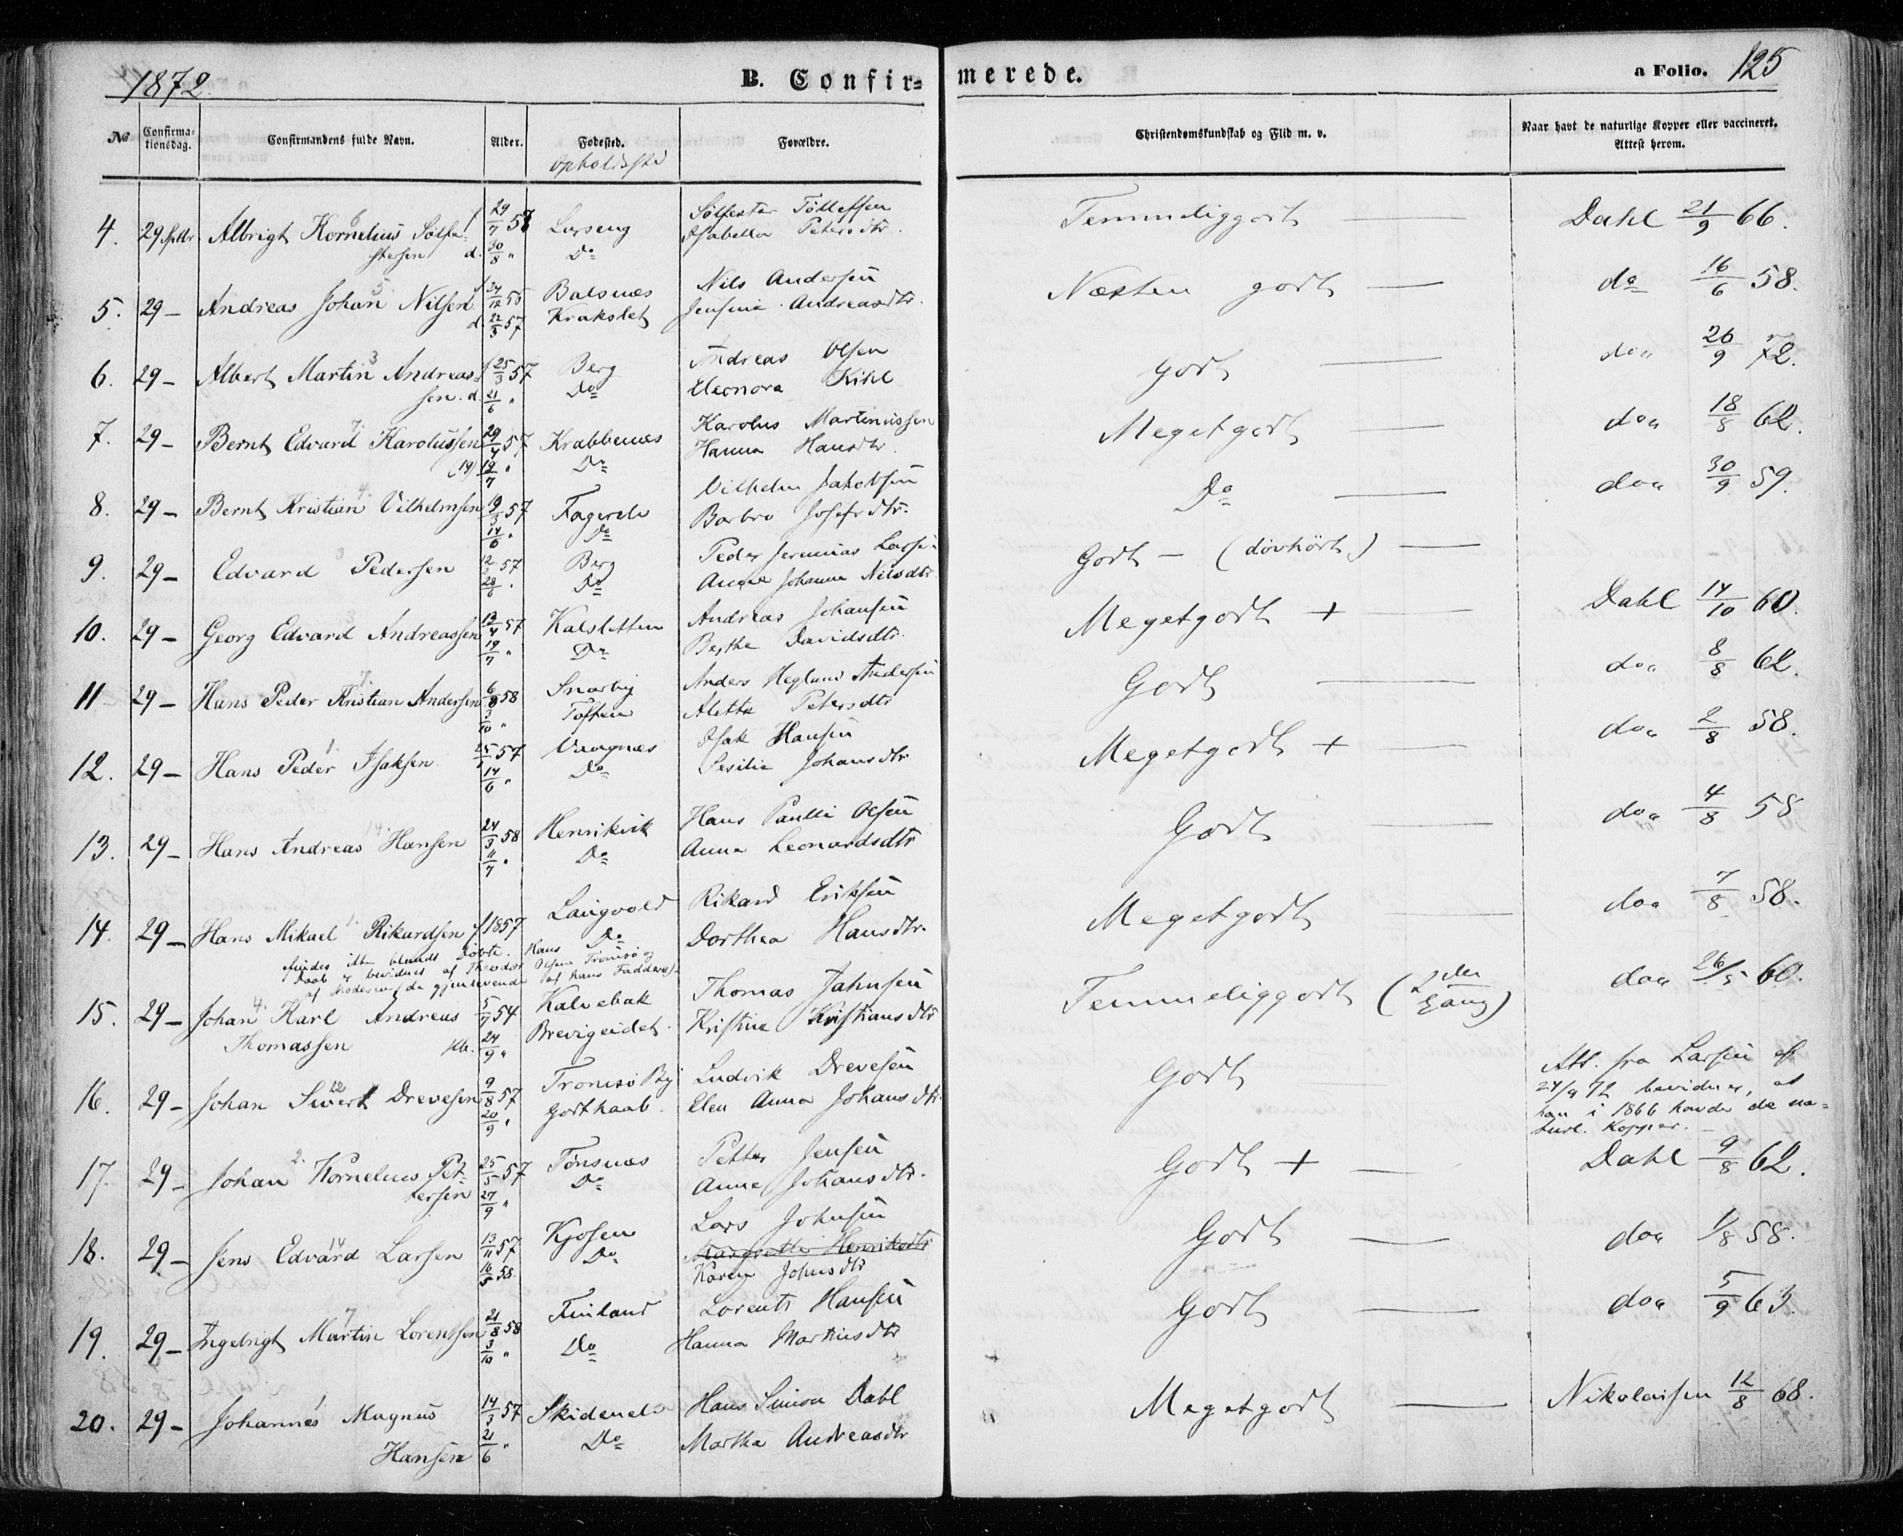 1872.
B. Confir=
merede.
a Folio. 125
No
Confirma-
tionsdag.
Confirmandens fulde Navn.
Alder.
Fødested.
opholdsste
Forældre.
Christendomskundskab og Flid m. v.
Naar havt de naturlige Kopper eller vaccineret.
Attest herom.
4. 29 Sptbr Albrigt Kornelius Sølfe- f 29/7 58 Larseng Sølfester Tølleffsen Temmeliggodt — Dahl 21/9 66.
stersen d. 30/8 " Do Isabella Petersdtr.
5. 29 — Andreas Johan Nilsen f 24/12 56 Balsnæs Nils Andersen Næsten godt — do 16/6 58.
d. 22/3 57 Krakslet Jensine Andreasdtr.
6. 29 — Albert Martin Andreas- f 25/3 57 Berg Andreas Olsen godt — doa 26/9 72.
sen. d. 21/6 " Do Eleonora Kihl
7. 29 — Bernt Edvard Karolussen 29/4 57 Krabbenæs Karolus Martinussen Megetgodt — doa 18/8 62.
19/7 " Do Hanna Hansdtr.
8. 29 — Bernt Kristian Vilhelmsen 19/3 57 Vilhelm Jakobsen Do — doa 30/9 59.
14/6 " Do Barbro Josefsdtr.
9. 29 — Edvard Pedersen 57 Berg Peder Jeremias Larsen Godt — (døvhørt) —
28/6 " Do Anne Johanna Nilsdtr.
10. 29 — Georg Edvard Andreassen 13/4 57 Kalsletten Andreas Johansen Megetgodt + — Dahl 14/10 60.
19/7 " Do Berthe Davidsdtr.
11 29 — Hans Peder Kristian Andersen 6/8 58 Snarby Anders Heglund Andersen Godt — doa 8/8 62.
3/10 " Toften Aletta Petersdtr
12. 29 — Hans Peder Isaksen 57 Vaagnæs Isak Hansen Megetgodt + — doa 2/8 58.
14/6 " Do Pesilie Johansdtr
13. 29 — Hans Andreas Hansen 24/3 58 Henrikvik Hans Paulli Olsen Godt — doa 4/8 58
11/7 " Do Anna Leonardsdtr
14. 29 — Hans Mikael Rikardsen f 1857 Langvold Rikard Eriksen Megetgodt — doa 7/8 58.
findes ikke blandt Døbte. Hans Do Dorthea Hansdtr.
Daab er bevidnet af Theodor Olsen Tromsø og
af Moderen (de gjenlevende af hans Faddere)
15. 29 — Johan Karl Andreas 5/7 54 Kalvebak Thomas Jahnsen Temmeliggodt (2den Gang) doa 26/5 60.
Thomassen 24/9 " Brevigeidet Kristine Kristiansdtr
16. 29 — Johan Sivert Drevesen 9/8 57 Tromsø By Ludvik Drevesen Godt Att. fra Larsen af
20/9 " Godthaab. Elen Anna Johansdtr. 24/9 72 bevidner, at
han i 1866 havde de na-
turl. Kopper. —
17. 29 — Johan Kornelius Pet- 25/5 57 Tønsnæs Petter Jensen Godt + — Dahl 9/8 62.
tersen 27/9 " Do Anne Johansdtr.
18. 29 — Jens Edvard Larsen 13/11 57 Kjosen Lars Johnsen Godt — doa 58.
16/5 58. Do Margrethe Henriksdtr
Karen Johnsdtr
19. 29 — Ingebrigt Martin Lorentsen 21/8 58 Finland Lorents Hansen Godt — doa 5/9 63.
3/10 " Do Hanna Martinsdtr
20. 29 — Johannes Magnus 14/3 57 Hans Simon Dahl Megetgodt — Nikolaisen 12/8 68.
Hansen 21/6 " Do Martha Andreasdtr